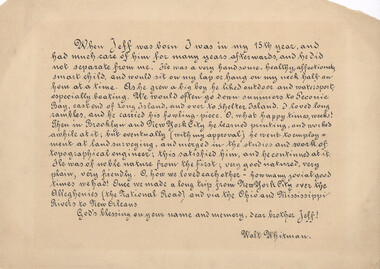 When Jeff was born I was in my 15th year, and
had much care of him for many years afterwards, and he did
not separate from me. He was a very handsome, healthy, affectionate,
smart child, and would sit on my lap or hang on my neck half an
hour at a time. As he grew a big boy he liked outdoor and water sport,
especially boating. We would often go down summers to Peconic
Bay, east end of Long Island, and over to Shelter Island. I loved long
rambles, and he carried his fowling-piece. O, what happy times, weeks!
Then in Brooklyn and New York City he learned printing, and worked
awhile at it; but eventually (with my approval) he went to employ-
ment at land surveying, and merged in the studies and work of
topographical engineer; this satisfied him, and he continued at it.
He was of noble nature from the first; very good natured, very
plain, very friendly. O, how we loved each other – how many jovial good
times we had! Once we made a long trip from New York City over the
Alleghenies (the National Road) and via the Ohio and Mississippi
Rivers to New Orleans
God's blessing on your name and memory, dear brother Jeff!
Walt Whitman.